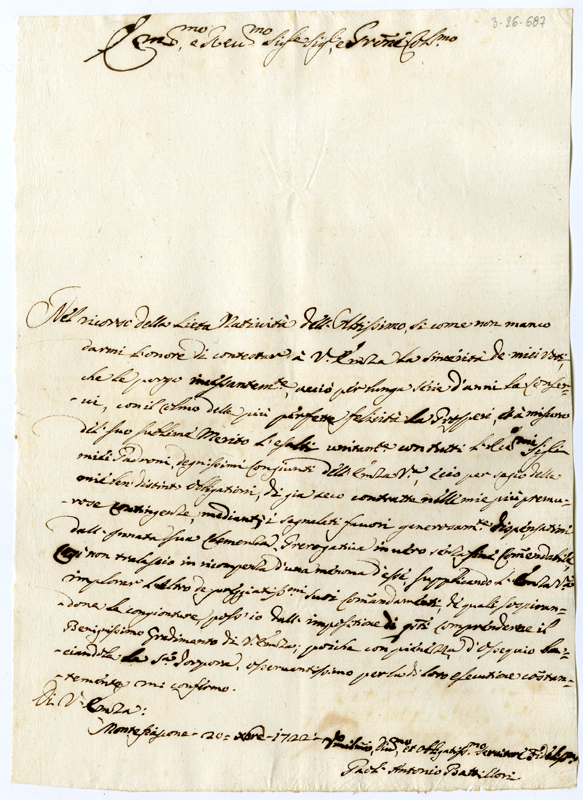 3-26-687
Em.mo, e Reu.mo Sig.re Sig.re, e Prone Col.mo
Nel ricorso della Lieta Natività dell'Altissimo, si come non manco
darmi l'onore di contestare à V.ra Emza La sincerità de miei Voti,
che le porgo incessantem.te, acciò per lunga serie d'anni La Conser-
vi, con il colmo delle più perfette felicità La Prosperi, et à misura
del suo sublime Merito L'esalti unitam.te con tutti L'Ecc.mi Sig.ri
miei Padroni, degnissimi Congiunti dell'Emza V.ra, e ciò per sagio delle
mie ben distinte Obligationi, di già seco contratte nelle mie più premu-
rose contingenze, mediante i segnalati favori generosam.te dispensatimi
dall'innata sua Clemenza, Prerogativa in vero
Così non tralascio in ricompensa d'una minima d'esse, supplicando L'Emza V.ra
implorar L'altro de pregiatissimi suoi Comandamenti, di quali sospiran-
done le congionture, possi io dalla impositione di q.sti comprendere il
Benignissimo Gradimento di V. Emza, poiche con pienezza d'Osequio ba-
ciandole La S.ra Porpora, osservantissimo per La di loro esecutione costan-
temente mi confermo.
Di V. Emza:
Montefiascone - 20 = Xbre - 1722 - Humilmo, Diu.mo, et Obligatiss.mo Servitore
Antonio Battillori